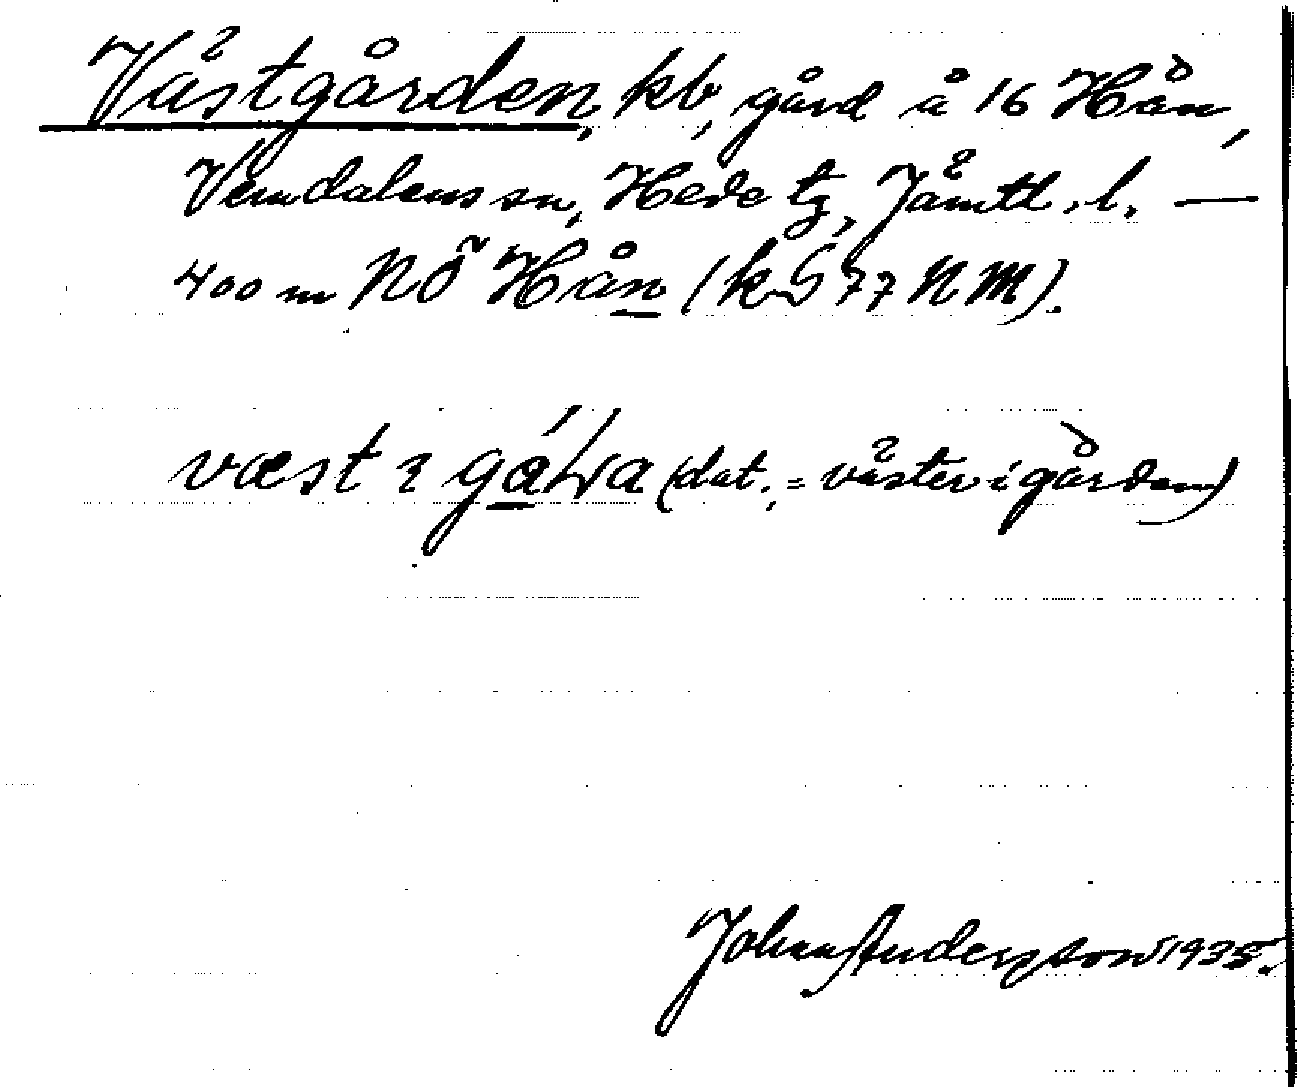 Västgården, kb, gård å 16 Hån,
Vemdalens sn, Hede tg, Jämtl. l. —
400 m NÖ Hån (kS 77 NM).
væst i gáɽa (dat., = väster i gården)
Johan Andersson 1935.